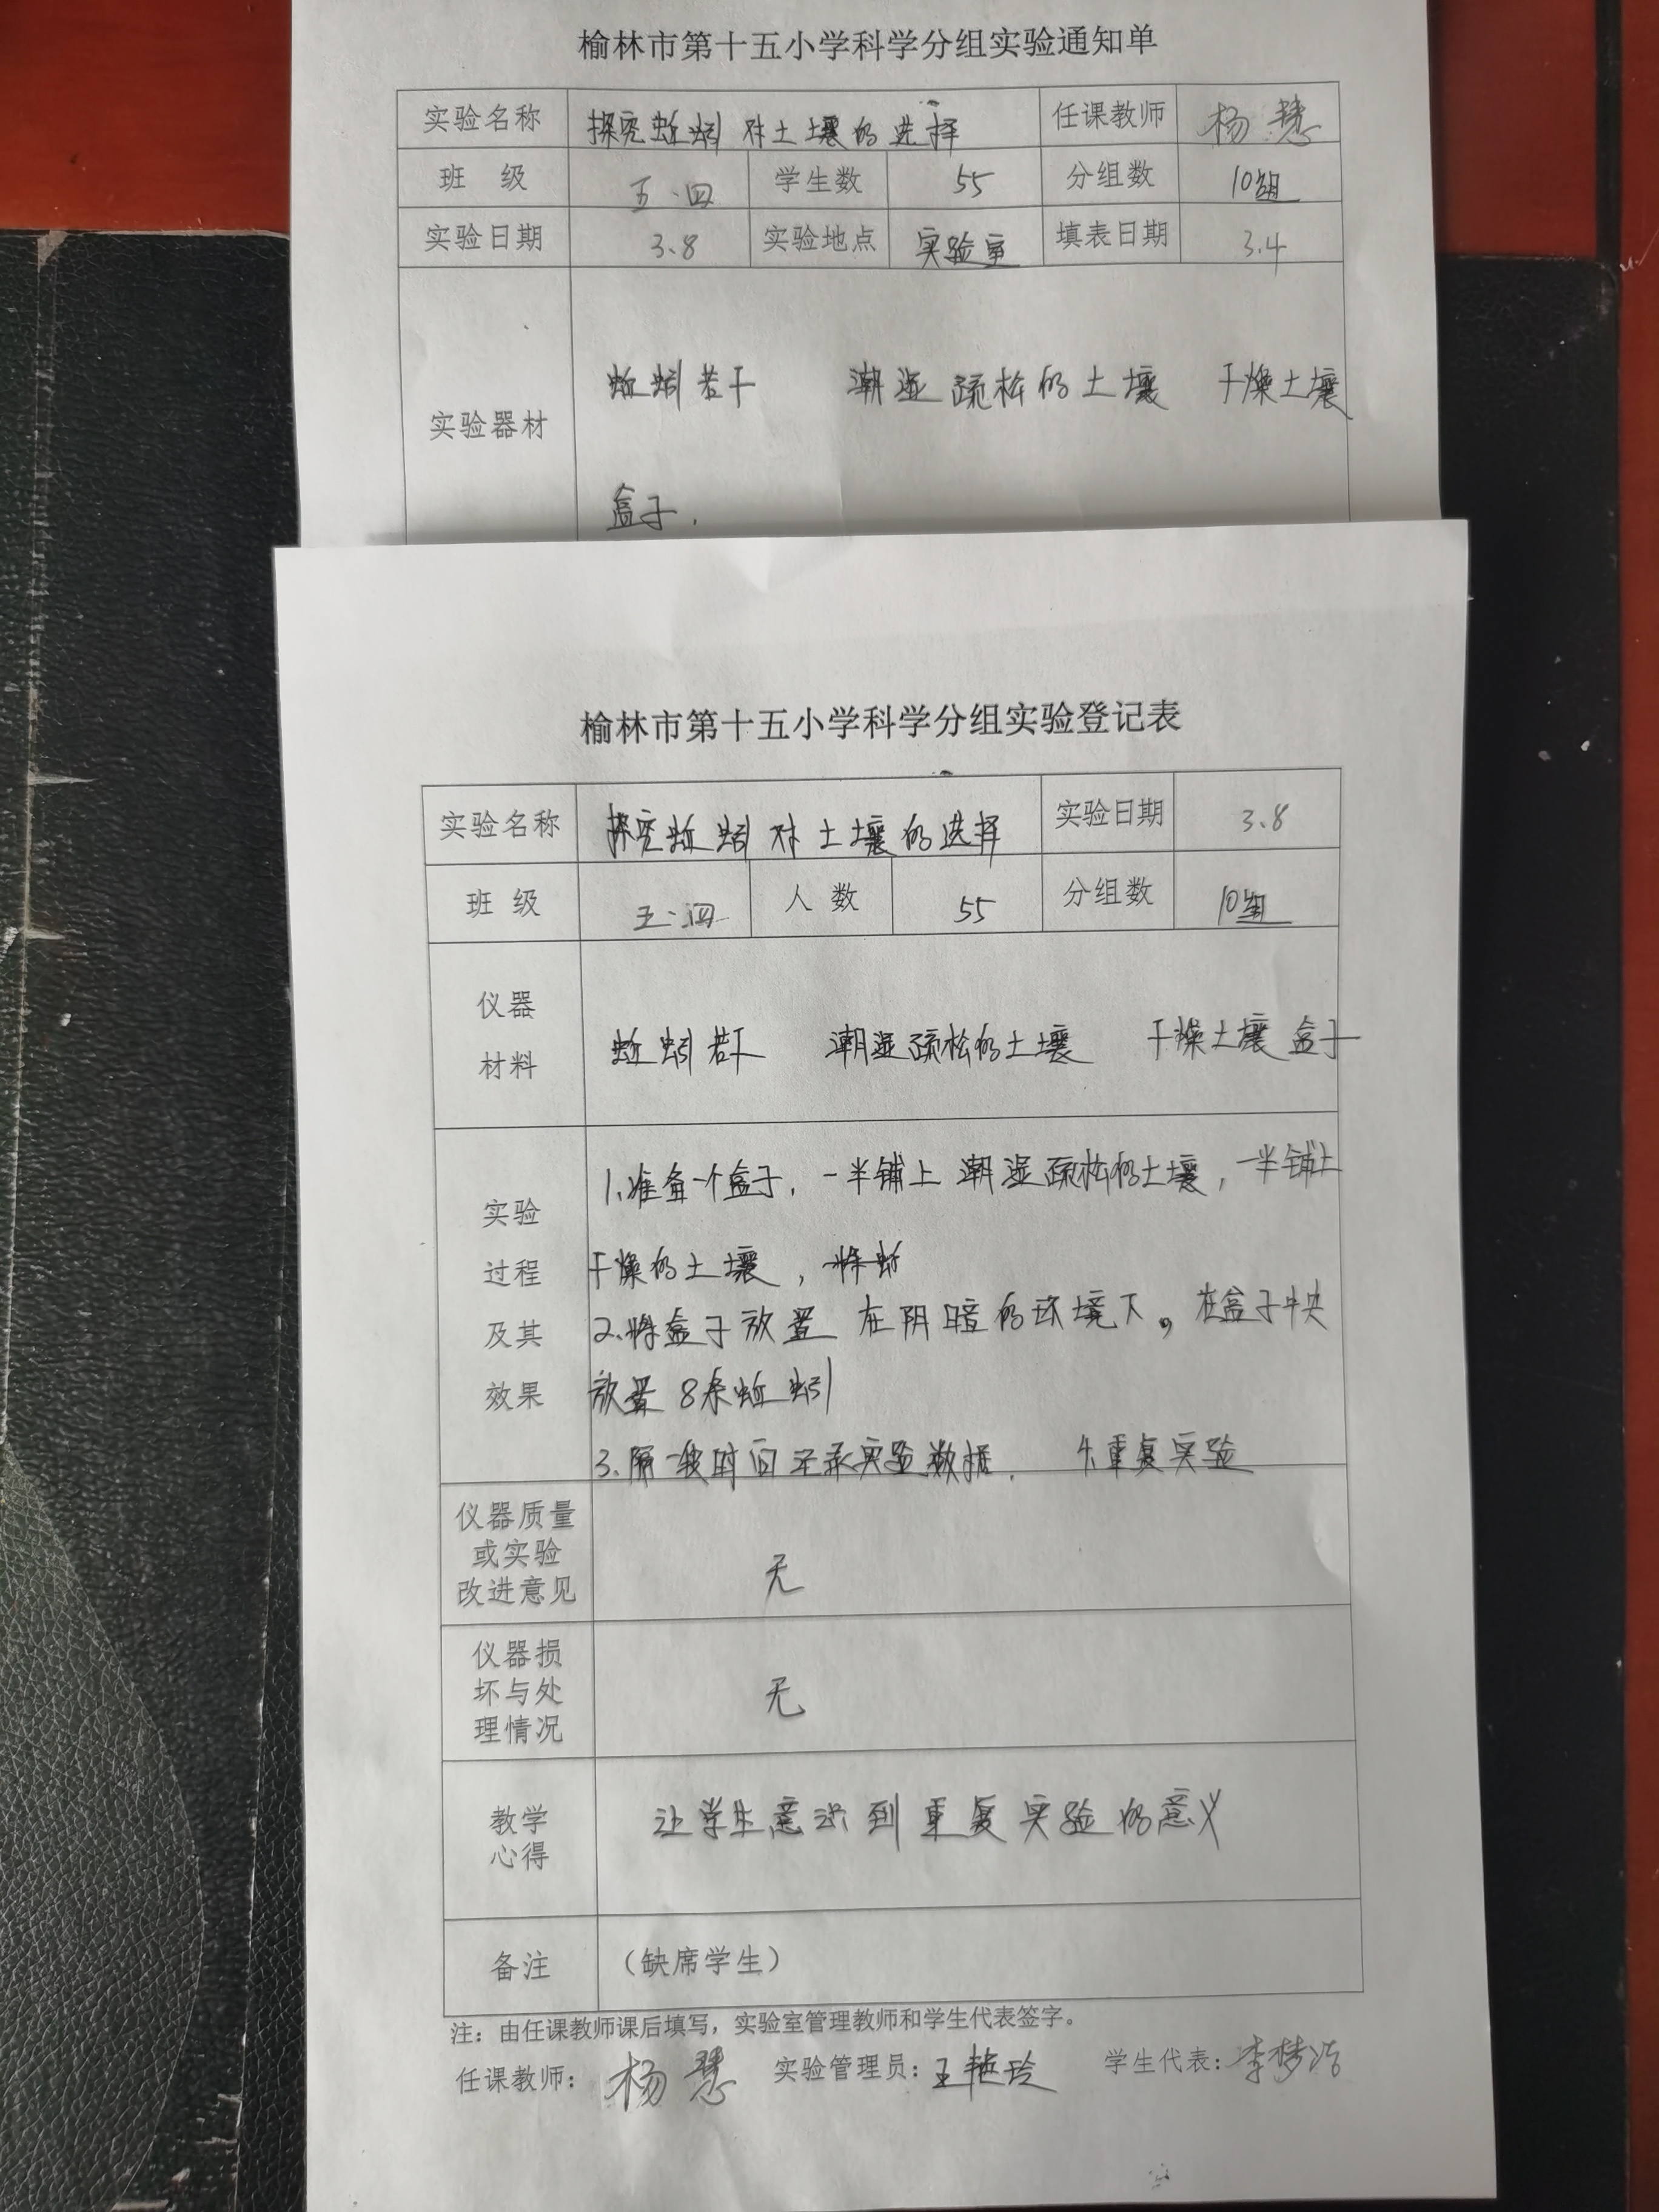 榆林市第十五小学科学分组实验通知单
实验名称 探究蚯蚓对土壤的选择 任课教师 杨慧
班 级 五.四 学生数 55 分组数 10组
实验日期 3.8 实验地点 实验室 填表日期 3.4
蚯蚓若干 潮湿疏松的土壤 干燥土壤
实验器材
盒子.
榆林市第十五小学科学分组实验登记表
实验名称 探究蚯蚓对土壤的选择 实验日期 3.8
班 级 五.四 人 数 55 分组数 10组
仪器
材料
蚯蚓若干 潮湿疏松的土壤 干燥土壤 盒子
实验
过程
及其
效果
1.准备一个盒子,一半铺上潮湿疏松的土壤,一半铺上
干燥的土壤,
2.将盒子放置在阴暗的环境下。在盒子中央
放置8条蚯蚓
3.隔一段时间记录实验数据. 4.重复实验
仪器质量
或实验
改进意见
无
仪器损
坏与处
理情况
无
教学
心得
让学生意识到重复实验的意义
备注 （缺席学生）
注：由任课教师课后填写，实验室管理教师和学生代表签字。
任课教师：杨慧 实验管理员：王艳玲 学生代表：李梦